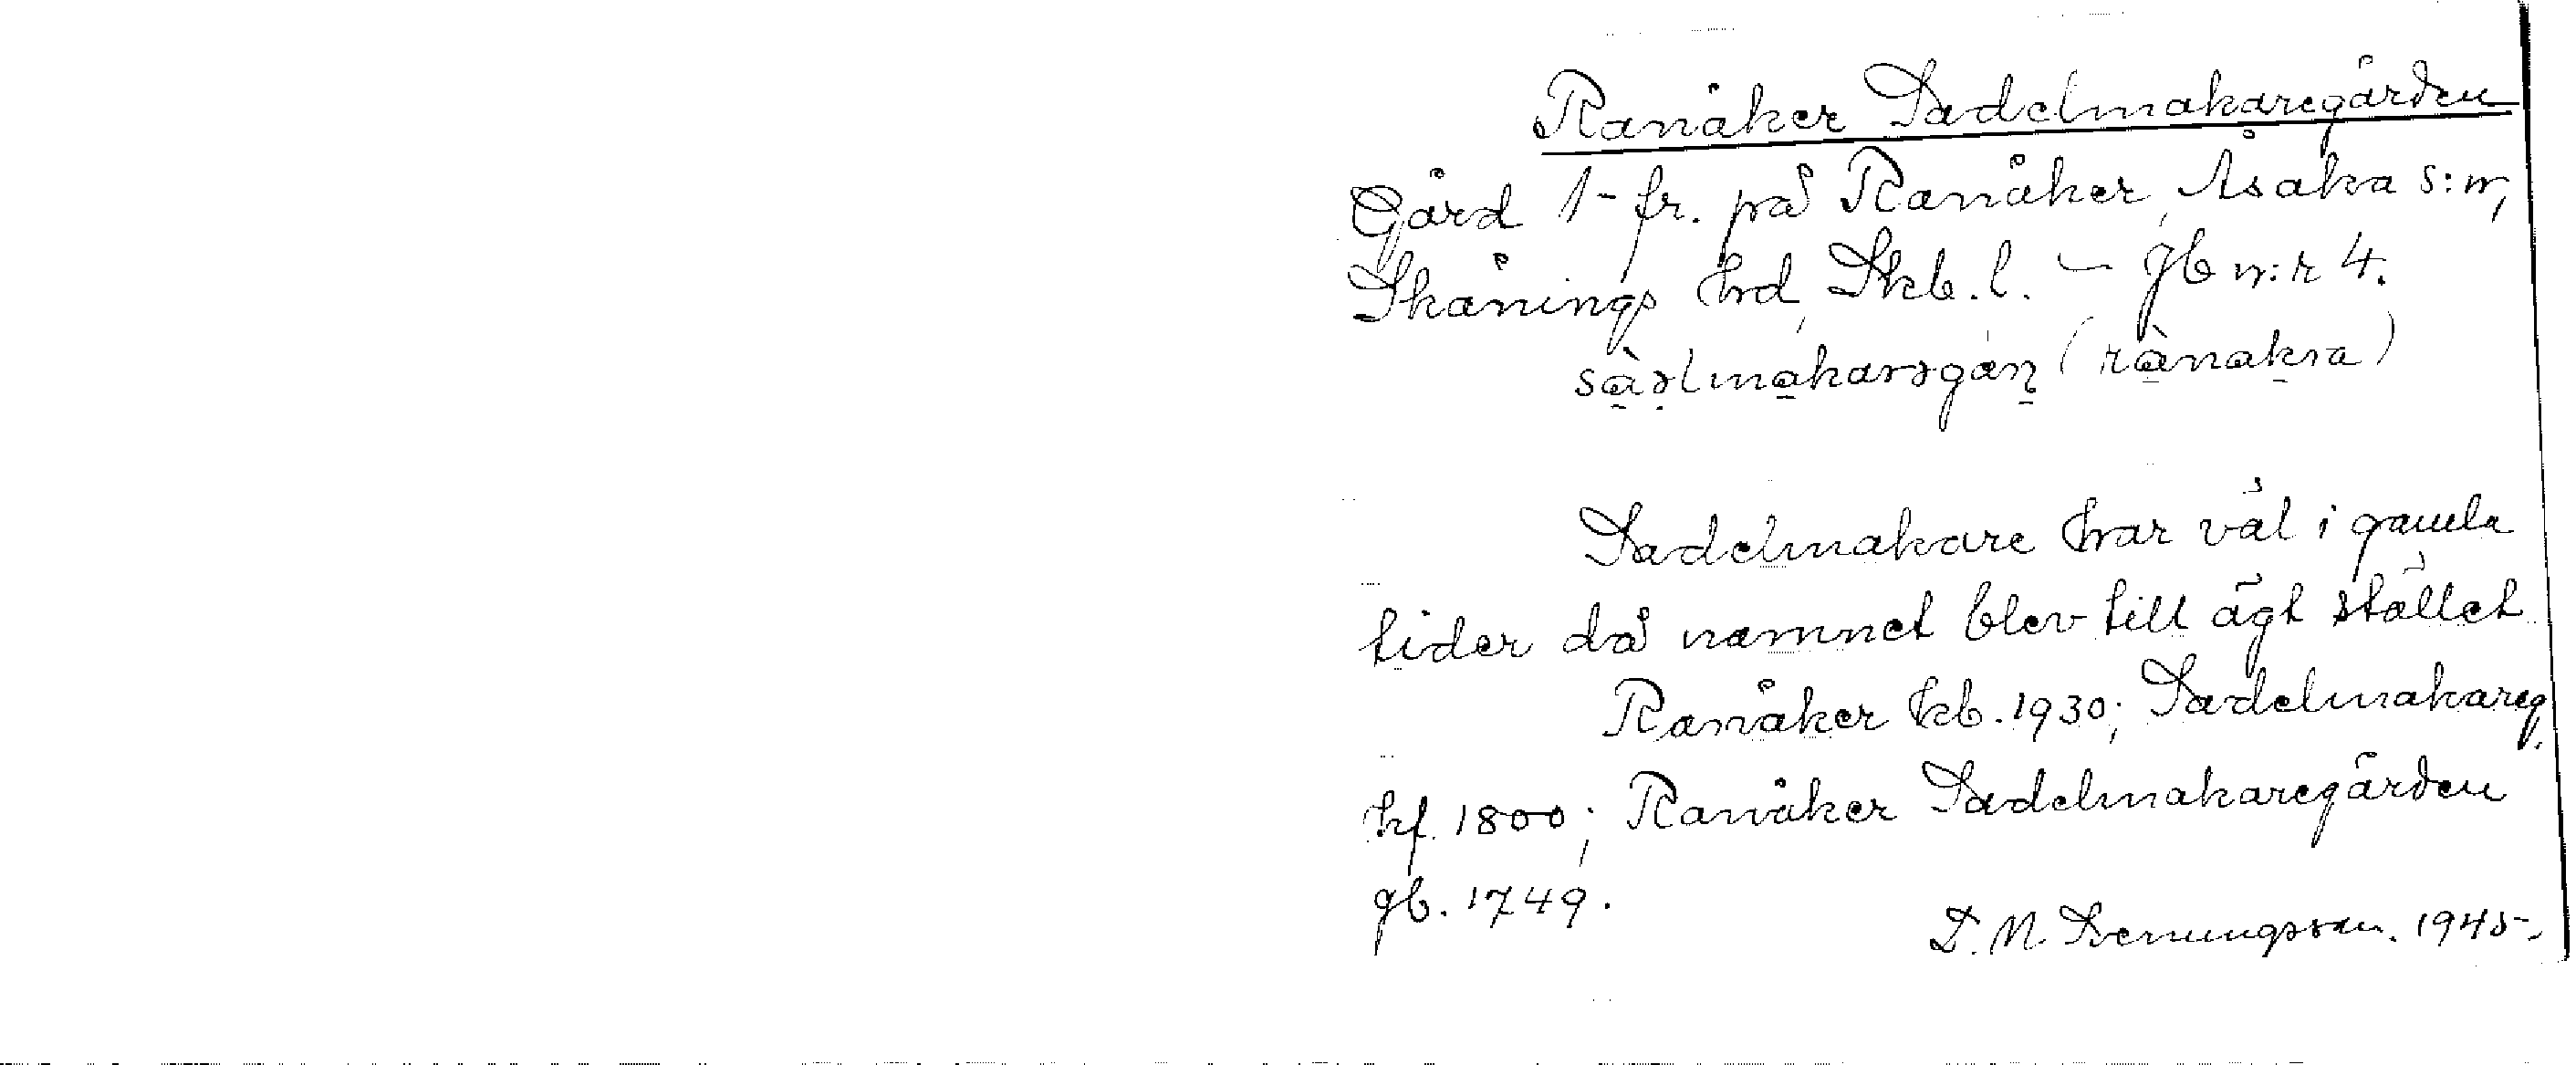 Ranåker Sadelmakaregården
Gård 1 fr. på Ranåker, Åsaka s:n,
Skånings hd, Skb. l. – Jb n:r 4.
Sadelmakare har väl i gamla
tider då namnet blev till ägt stället
Ranåker kb. 1930; Sadelmakareg.
hf. 1800; Ranåker Sadelmakaregården
jb. 1749.
D. N. Svenungsson. 1945.